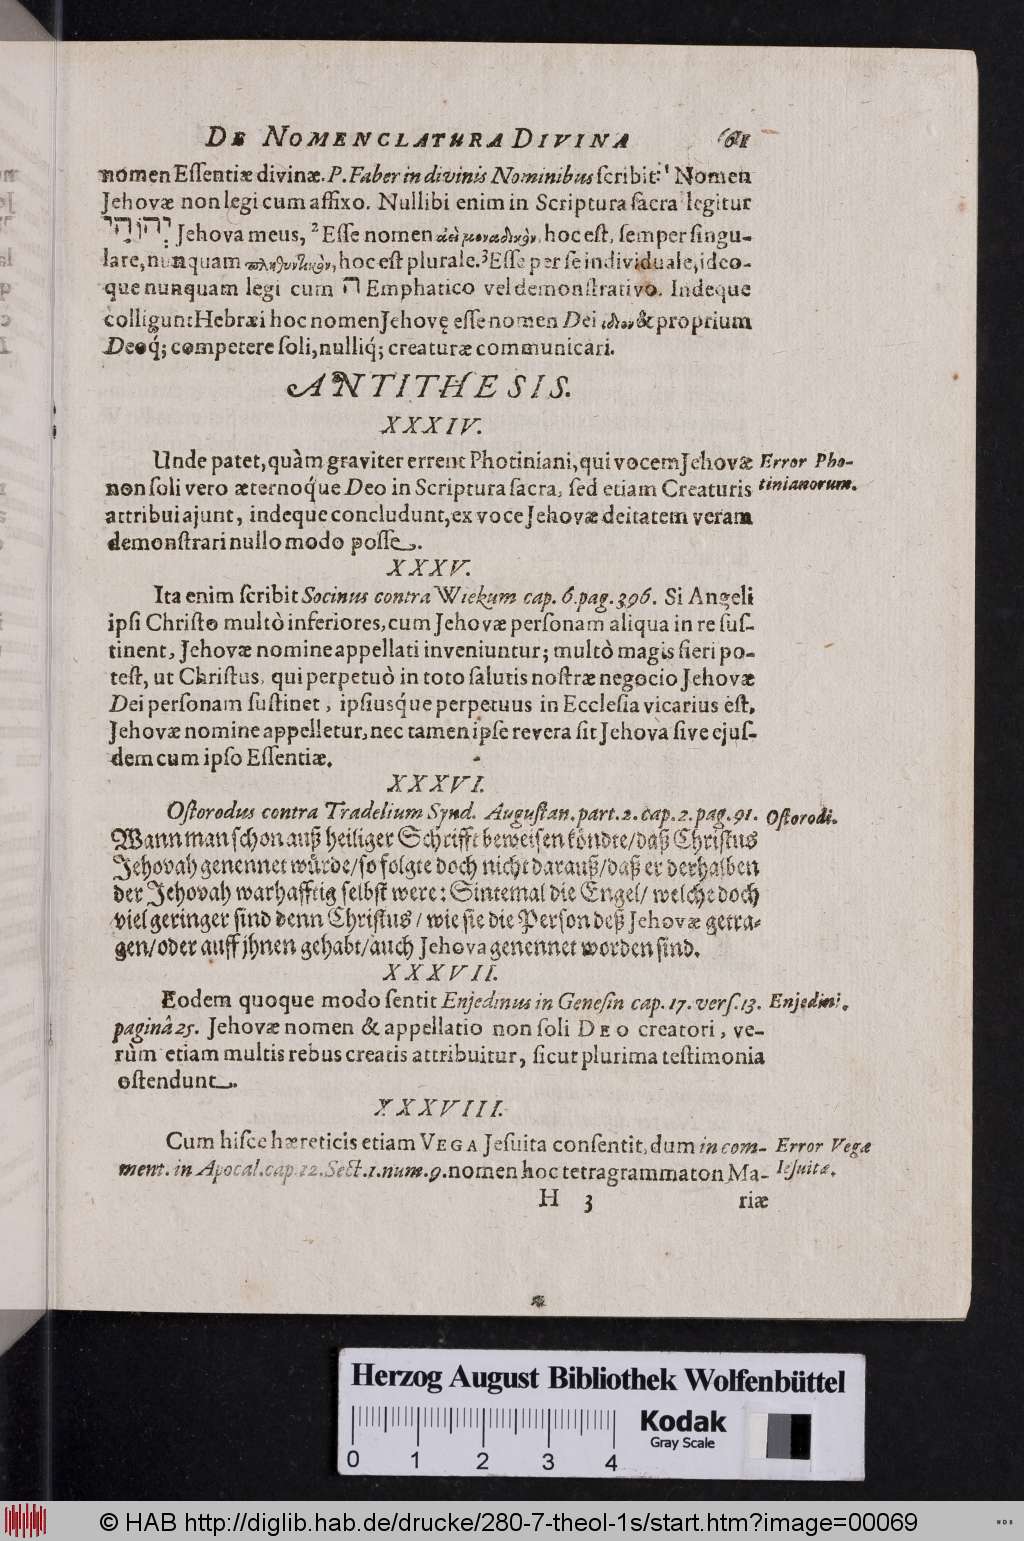 DE NOMENCLATURA DIVINA 61
nomen Eſſentiæ divinæ. P. Faber in divinis Nominibus ſcribit: ¹ Nomen
Jehovæ non legi cum affixo. Nullibi enim in Scriptura ſacra legitur
Jehova meus, ² Eſſe nomen ἀεὶ μοναδικὸν, hoc eſt, ſemper ſingu-
lare, nunquam πληθυντικὸν, hoc eſt plurale. ³ Eſſe per ſe individuale, ideo-
que nunquam legi cum ה Emphatico vel demonſtrativo. Indeque
colligunt Hebræi hoc nomen Jehovę eſſe nomen Dei ιδιον & proprium
Deoq́; competere ſoli, nulliq́; creaturæ communicari.
ANTITHESIS.
XXXIV.
Unde patet, quàm graviter errent Photiniani, qui vocem Jehovæ
non ſoli vero æternoq́ue Deo in Scriptura ſacra, ſed etiam Creaturis
attribui ajunt, indeque concludunt, ex voce Jehovæ deitatem veram
demonſtrari nullo modo poſſe.
Error Pho-
tinianorum.
XXXV.
Ita enim ſcribit Socinus contra Wiekum cap. 6. pag. 396. Si Angeli
ipſi Chriſto multò inferiores, cum Jehovæ perſonam aliqua in re ſuſ-
tinent, Jehovæ nomine appellati inveniuntur; multò magis fieri po-
teſt, ut Chriſtus, qui perpetuò in toto ſalutis noſtræ negocio Jehovæ
Dei perſonam ſuſtinet, ipſiusq́ue perpetuus in Eccleſia vicarius eſt,
Jehovæ nomine appelletur, nec tamen ipſe revera ſit Jehova ſive ejuſ-
dem cum ipſo Eſſentiæ.
XXXVI.
Oſtorodus contra Tradelium Synd. Auguſtan. part. 2. cap. 2. pag. 91.
Oſtorodi.
Wann man ſchon auß heiliger Schrifft beweiſen köndte/ daß Chriſtus
Jehovah genennet würde/ ſo folgte doch nicht darauß/ daß er derhalben
der Jehovah warhafftig ſelbſt were: Sintemal die Engel/ welche doch
viel geringer ſind denn Chriſtus/ wie ſie die Perſon deß Jehovæ getra-
gen/ oder auff jhnen gehabt/ auch Jehova genennet worden ſind.
XXXVII.
Eodem quoque modo ſentit Enjedinus in Geneſin cap. 17. verſ. 13.
Enjedini.
paginâ 25. Jehovæ nomen & appellatio non ſoli DEO creatori, ve-
rùm etiam multis rebus creatis attribuitur, ſicut plurima teſtimonia
oſtendunt.
XXXVIII.
Cum hiſce hæreticis etiam VEGA Jeſuita conſentit, dum in com-
ment. in Apocal. cap. 12. Sect. 1. num. 9. nomen hoc tetragrammaton Ma-
Error Vegæ
Ieſuitæ.
H 3 riæ
Herzog August Bibliothek Wolfenbüttel
0 1 2 3 4
Kodak
Gray Scale
© HAB http://diglib.hab.de/drucke/280-7-theol-1s/start.htm?image=00069